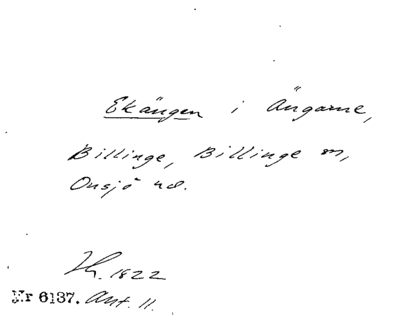 Ekängen i Ängarne,
Billinge, Billinge sn,
Onsjö hd.
1822
Nr 6137. Ant. 11.